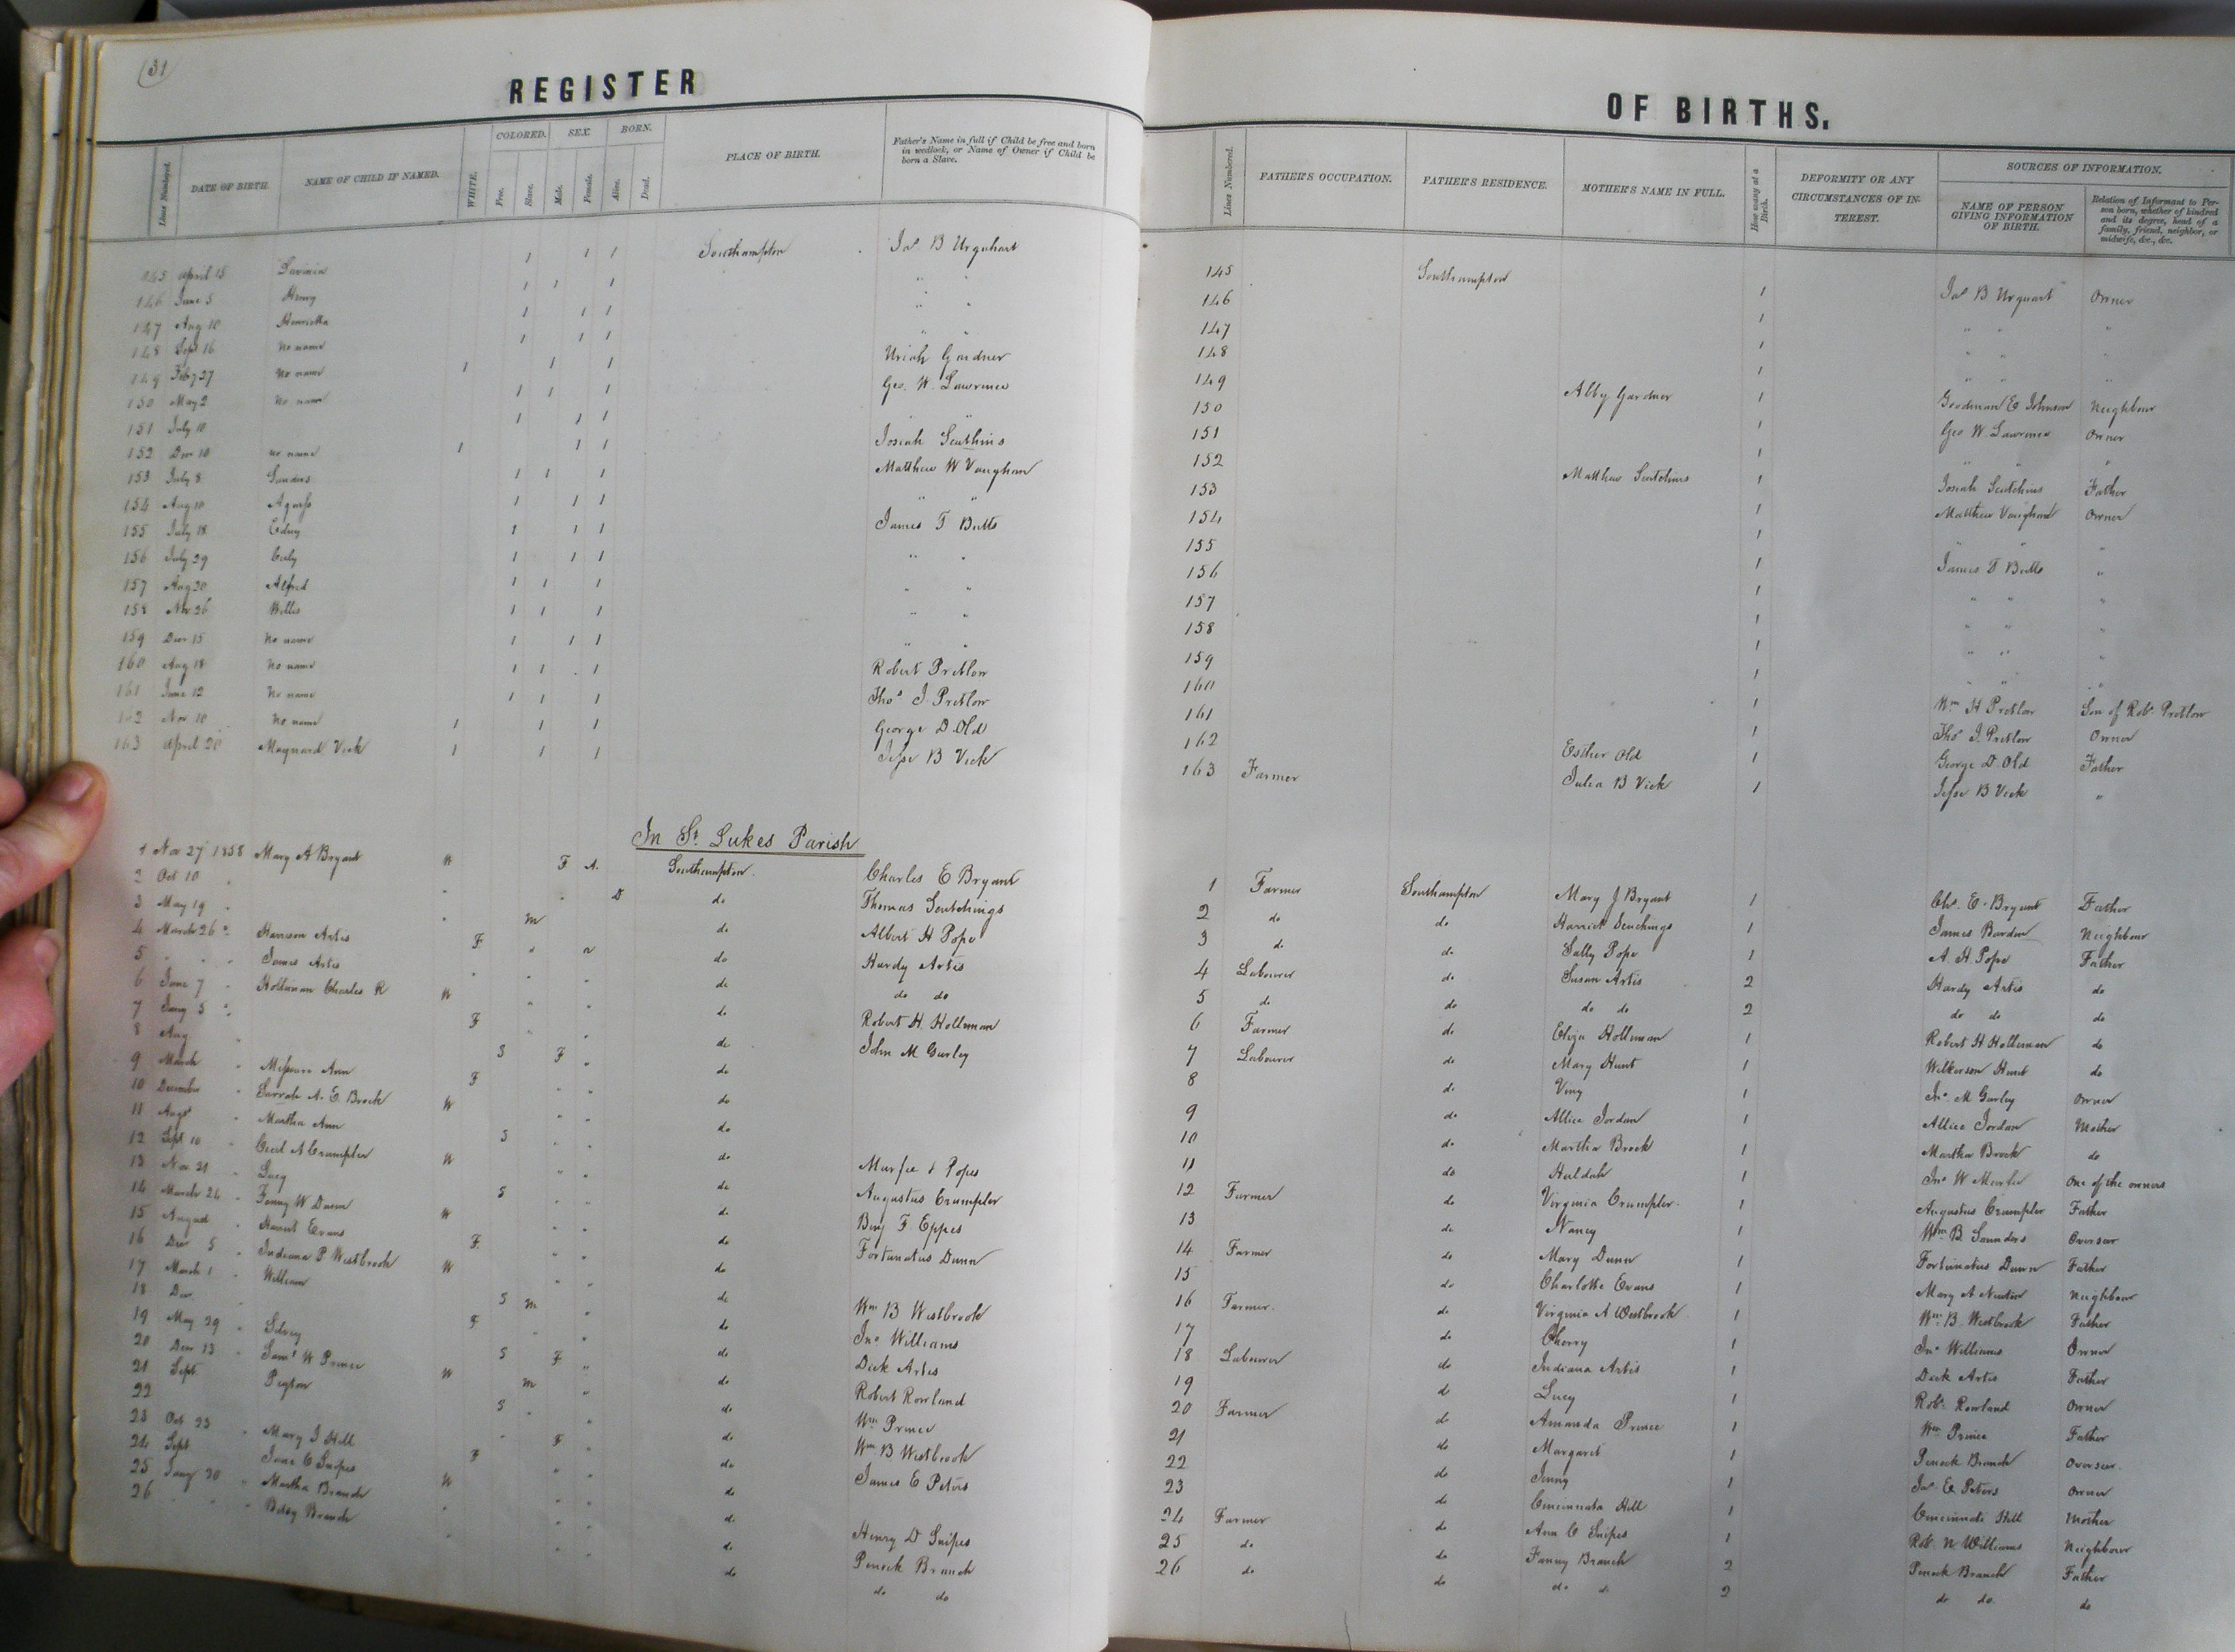 (31)
REGISTER OF BIRTHS.
Lines Numbered. DATE OF BIRTH. NAME OF CHILD IF NAMED. WHITE. COLORED. Free. Slave. SEX. Male. Female. BORN. Alive. Dead. PLACE OF BIRTH. Father's Name in full if Child be free and born in wedlock, or Name of Owner if Child be born a Slave. Lines Numbered. FATHER'S OCCUPATION. FATHER'S RESIDENCE. MOTHER'S NAME IN FULL. How many at a Birth. DEFORMITY OR ANY CIRCUMSTANCES OF INTEREST. SOURCES OF INFORMATION. NAME OF PERSON GIVING INFORMATION OF BIRTH. Relation of Informant to Person born, whether of kindred and its degree, head of a family, friend, neighbor, or midwife, &c., &c.
145 April 15 Lavinia 1 1 1 Southampton Jas B Urquhart 145 Southampton 1 Jas B Urquart Owner
146 June 5 Henry 1 1 1 " " 146 1 " " "
147 Aug 10 Henrietta 1 1 1 " " 147 1 " " "
148 Sept 16 No name 1 1 1 " " 148 1 " " "
149 Feby 27 No name 1 1 1 Uriah Gardner 149 Abby Gardner 1 Goodman E Johnson Neighbour
150 May 2 No name 1 1 1 Geo. W. Lawrence 150 1 Geo W Lawrence Owner
151 July 10 1 1 1 " " 151 1 " " "
152 Decr 10 no name 1 1 1 Josiah Scutchins 152 Matthew Scutchins 1 Josiah Scutchins Father
153 July 8 Sanders 1 1 1 Matthew W Vaughan 153 1 Matthew Vaughan Owner
154 Aug 10 Agness 1 1 1 " " 154 1 " " "
155 July 18 Edwy 1 1 1 James T Butts 155 1 James T Butts "
156 July 29 Caty 1 1 1 " " 156 1 " " "
157 Aug 20 Alfred 1 1 1 " " 157 1 " " "
158 Nov 26 Willis 1 1 1 " " 158 1 " " "
159 Decr 15 No name 1 1 1 " " 159 1 " " "
160 Aug 18 No name 1 1 1 Robert Pretlow 160 1 Wm H Pretlow Son of Robt Pretlow
161 June 12 No name 1 1 1 Thos J. Pretlow 161 1 Thos J. Pretlow Owner
162 Nov 10 No name 1 1 1 George D Old 162 Esther Old 1 George D. Old Father
163 April 20 Maynard Vick 1 1 1 Jesse B Vick 163 Farmer Julia B Vick 1 Jesse B Vick "
In St. Lukes Parish
1 Nov 27 1858 Mary A Bryant W F A. Southampton Charles E Bryant 1 Farmer Southampton Mary J Bryant 1 Chs. E. Bryant Father
2 Oct 10 " " D do Thomas Scutchings 2 do do Harriet 1 James Barden Neighbour
3 May 19 " " M do Albert H Pope 3 do do Sally Pope 1 A. H. Pope Father
4 March 26 " Harrison Artis F " A do Hardy Artis 4 Labourer do Susan Artis 2 Hardy Artis do
5 " " James Artis " " " do do do 5 do do do do 2 do do do
6 June 7 " Holleman Charles R W " " do Robert H. Holleman 6 Farmer do Eliza Holleman 1 Robert H Holleman do
7 Jany 5 " F " " do 7 Labourer do Mary Hunt 1 Wilkerson Hunt do
8 Aug " S F " do John M Gurley 8 do Viny 1 Jno. M Gurley Owner
9 March " Missouri Ann F " " do 9 do Allice Jordan 1 Allice Jordan Mother
10 December " Sarrah A. E. Brock W " " do 10 do Martha Brock 1 Martha Brock do
11 Augt " Martha Ann S " " do Murfee & Popes 11 do Huldah 1 Jno W Murfee One of the owners
12 Sept 10 " Cecil A Crumpler W " " do Augustus Crumpler 12 Farmer do Virginia Crumpler 1 Augustus Crumpler Father
13 Nov 21 " Lucy S " " do Benj F Eppes 13 do Nancy 1 Wm B Saunders Overseer
14 March 24 " Fanny W Dunn W " " do Fortunatus Dunn 14 Farmer do Mary Dunn 1 Fortunatus Dunn Father
15 August " Harriet Evans F. " " do 15 do Charlotte Evans 1 Mary A Newton Neighbour
16 Decr 5 " Indiana P Westbrook W " " do Wm B Westbrook 16 Farmer. do Virginia A Westbrook 1 Wm. B. Westbrook Father
17 March 1 " William S M " do Jno Williams 17 do Cherry 1 Jno Williams Owner
18 Decr " F " " do Dick Artis 18 Labourer do Indiana Artis 1 Dick Artis Father
19 May 29 " Sidney S F " do Robert Rowland 19 do Lucy 1 Robt. Rowland Owner
20 Decr 13 " Saml W Prince W M " do Wm Prince 20 Farmer do Amanda Prince 1 Wm Prince Father
21 Sept Peyton S " " do Wm B Westbrook 21 do Margaret 1 Penock Branch Overseer
22 " F " do James E Peters 22 do Jenny 1 Jas E Peters Owner
23 Oct 23 " Mary J Hill F " " do 23 do Cincinnata Hill 1 Cincinnati Hill Mother
24 Sept Jane C Snipes W " " do Henry D Snipes 24 Farmer do Ann C Snipes 1 Robt. N Williams Neighbour
25 Jany 30 " Martha Branch " " " do Penock Branch 25 do do Fanny Branch 2 Penock Branch Father
26 " " " Betsy Branch " " " do do do 26 do do do do 2 do do do